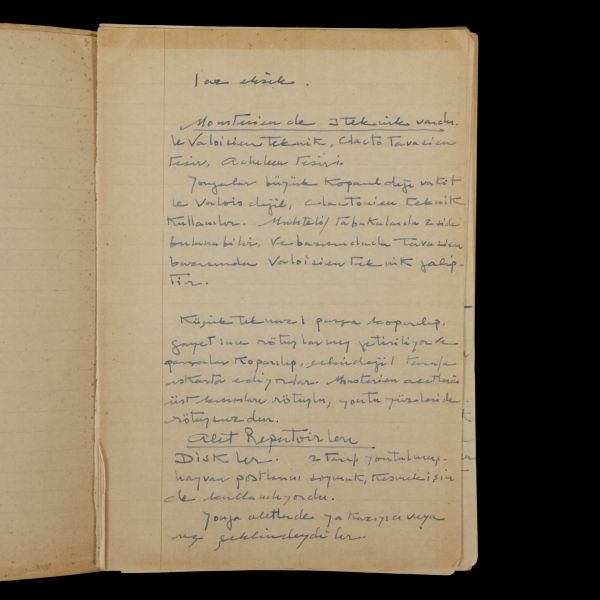 1 az eksik.
Mousterien de 3 teknik vardır.
le Valoisien teknik, Clacto Tavacien
tesir, Acheleen tesiri.
Yongalar büyük koparıldığı vakit
le Valois değil, Clactonien teknik
kullanılır. Muhtelif tabakalarda 2 side
bulunabilir. Ve bazısında da Tavacien
bazısında Valoisien teknik galip-
tir.
Küçük 1 parça koparılıp,
gayet ince rötuşlarmış getiriliyor
parçalar koparılıp, 1 tarafı
ıskarta ediyorlar. Mousterien aletlerin
üst kısımları rötuşlu, yonta yüzleride
rötuşsuzdur.
Alet Repertoirleri
Diskler. 2 tarafı yontulmuş,
hayvan postlarını soymak, kesmek için
de kullanılıyordu.
Yonga aletlerde ya kazıyıcı veya
uç şeklindeydiler.